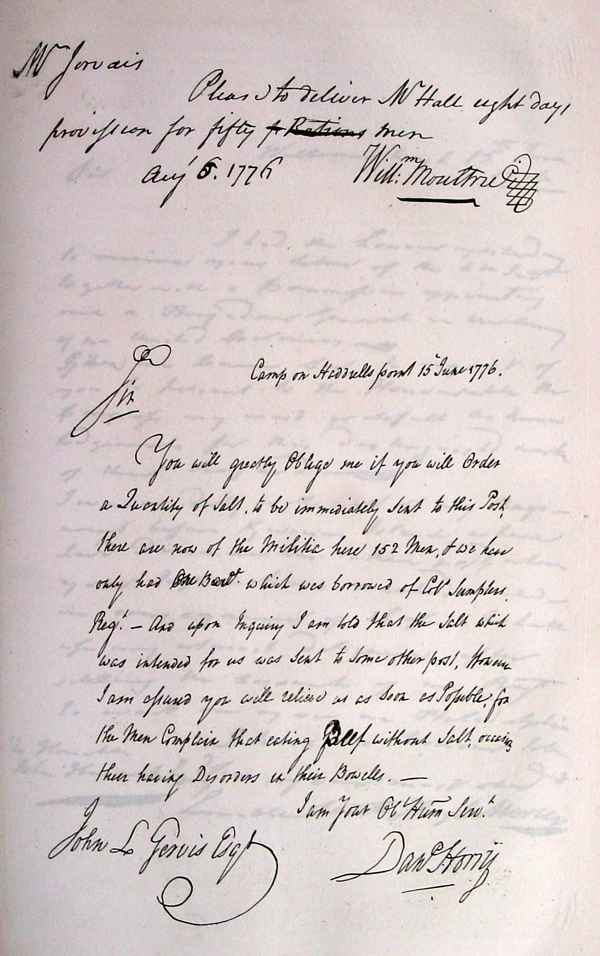 Mr Jervais
Please to deliver Mr Hall eight days
provission for fifty Rations men
Augt 6. 1776 Willm. Moultrie
Camp on Haddrells point 15 June 1776.
Sir
You will greatly Oblege me if you will Order
a Quantity of Salt, to be immediately Sent to this Post,
there are now of the Militia here 152 Men, & we have
only had One Barl. which was borrowed of Coll Sumpters
Regt. — And upon Inquiry I am told that the Salt which
was intended for us was Sent to Some other post,
I am assured you will relieve us as Soon as Possible, for
the Men Complain that eating without Salt,
their having Disorders in their Bowells. —
I am Your Obt Hum Servt.
John L Gervis Esqr
Danl Horry